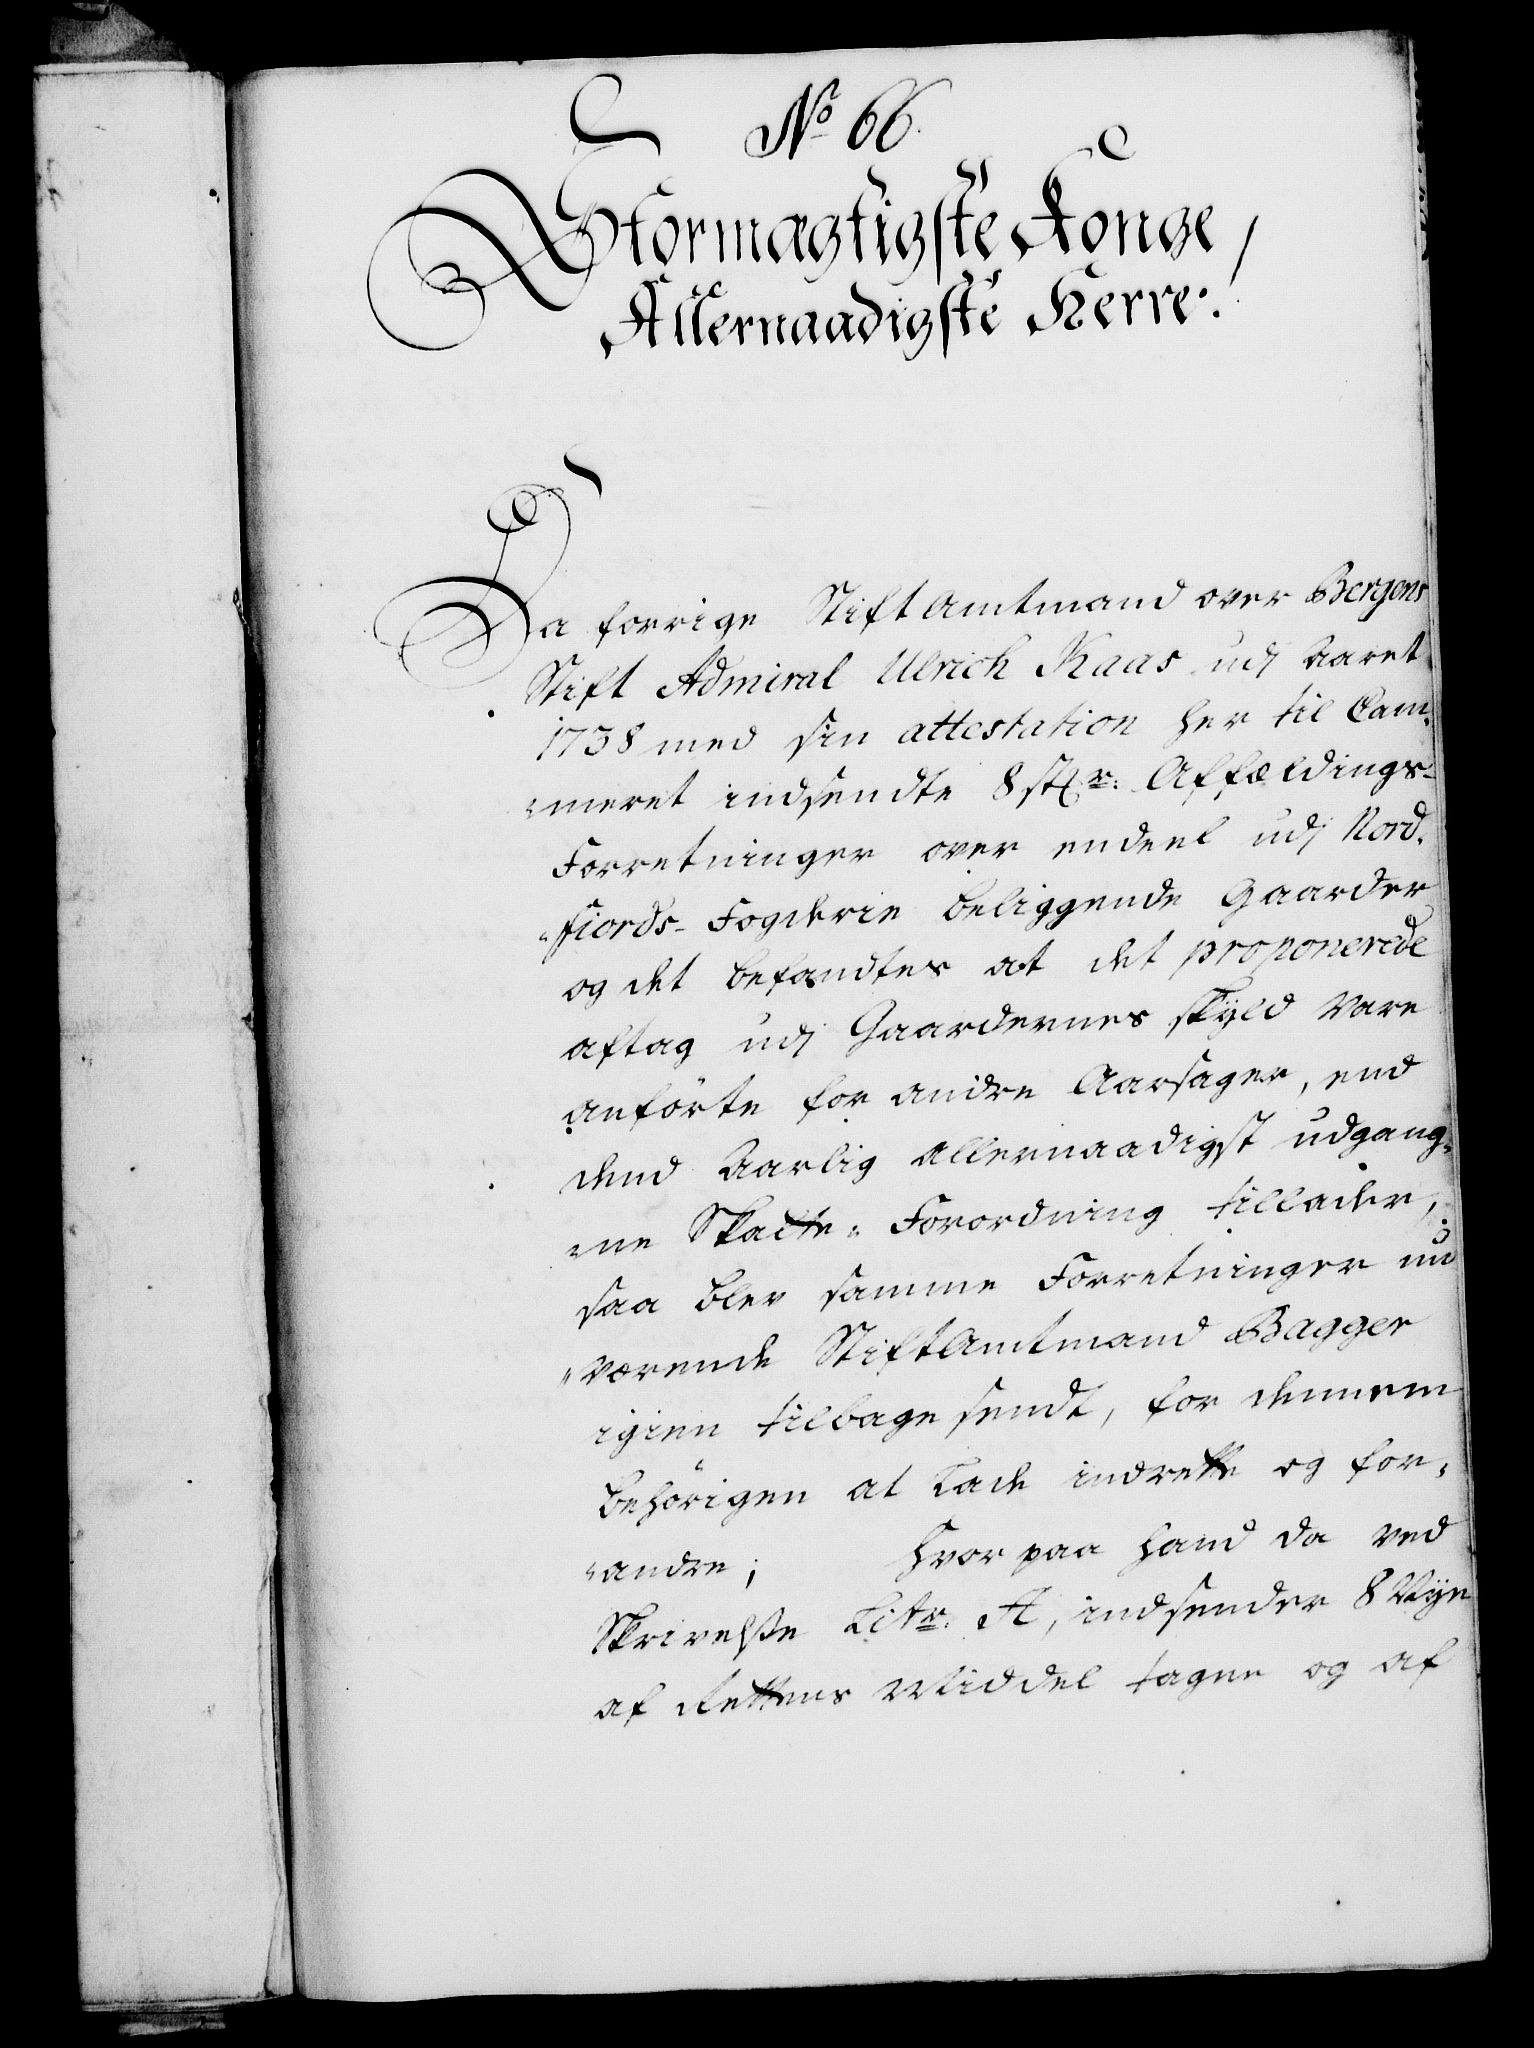 No 66.
Stormægtigste Konge,
Allernaadigste Herre!
Da forrige StiftAmtmand over Bergens
Stift Admiral Ulrich Kaas udj Aaret
1738 med sin attestation her til Cam¬
meret indsendte 8 stkr: Affældings-
Forretninger over endeel udj Nord¬
fiords-Fogderie beliggende Gaarder
og det befandtes at det proponerede
aftag udj Gaardernes skyld vare
anförte for andre Aarsager, end
dend Aarlig allernaadigst udgang¬
ne Skatte-Forordning tillader,
saa blev samme Forretninger nu
værende StiftAmtmand Bagger
igien tilbage sendt, for dennem
behörigen at lade indrette og for¬
andre; hvor paa hand da ved
Skrivelße Litr. A, indsender 8 Nÿe
af Rettens Middel tagne og af